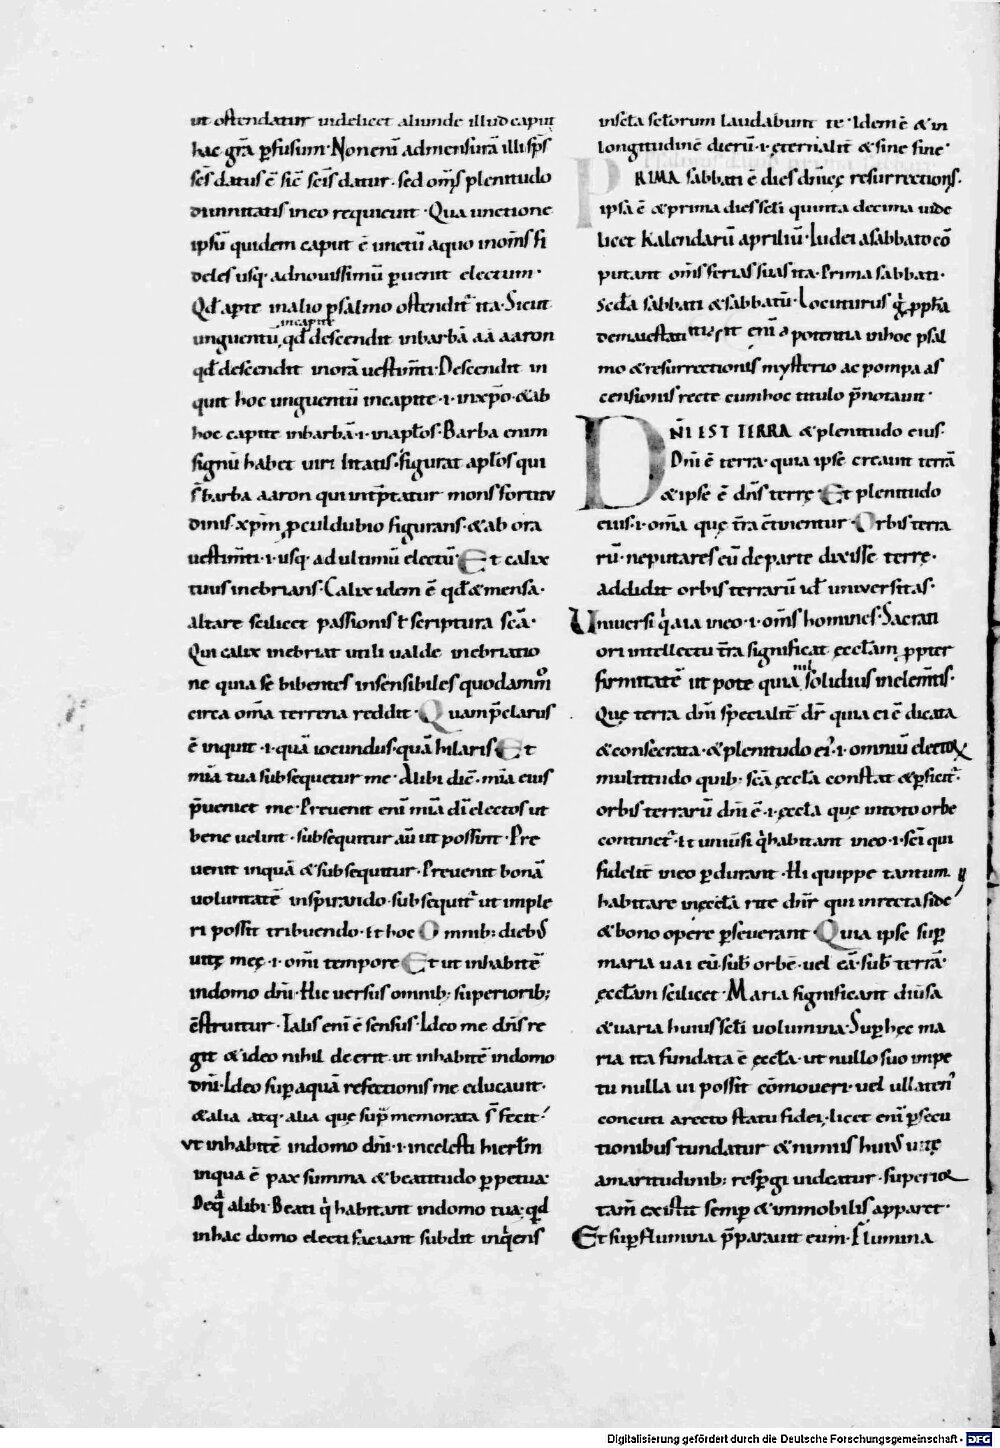 ut ostendatur uidelicet aliunde illud caput
hac gr̄a p̄fusum· Non eni᷑ ad mensurā illi sp̄s
sc̄s datus ē sic̄ sc̄is datur· sed om̄s plenitudo
diuinitatis in eo requieuit· Qua unctione
ipsū quidem caput ē unctū a quo in om̄s fi
deles usq· ad nouissimū ꝑuenit electum·
Qđ aꝑte in alio ꝑsalmo ostendit᷑ ita· Sicut
in capite
unguentū qđ descendit in barbā aā aaron
qđ descendit in orā uestim̄ti· Descendit in
quit hoc unguentū in capite·i·in xp̄o·&ab
hoc capite in barbā·i·in ap̄los· Barba enim
signū habet uirilitatis· figurat ap̄los qui
s̄ barba aaron qui int̄p̄tatur mons fortitu
dinis· xp̄m ꝓculdubio figurans· &ab ora
uestim̄ti·i·usq· ad ultimū electū· Et calix
tuus inebrians· Calix idem ē qđ & mensa·
altare scilicet passionis ł scriptura sc̄a·
Qui calix inebriat utili ualde inebriatio
ne quia se bibentes insensibiles quodammͦ
circa om̄a terrena reddit· Quam p̄clarus
ē inquit·i·quā iocundus·quā hilaris· Et
mīa tua subsequetur me· Alibi dic̄· mīa eius
p̄ueniet me· Preuenit eni᷑ mīa di᷑ electos ut
bene uelint· subsequitur aū ut possint· Pre
uenit inquā & subsequitur· Preuenit bonā
voluntatē inspirando· subsequit᷑ ut imple
ri possit tribuendo· Et hoc Omnib; dieb᷒
uitę męę·i·om̄i tempore· Et ut inhabitē
in domo dn̄i· Hic uersus omnib; superiorib;
c̄struitur· Talis eni᷑ ē sensus· Ideo me dn̄s re
git & ideo nihil deerit· ut inhabitē in domo
dn̄i· Ideo suꝑ aquā refectionis me educauit·
& alia atq· alia quę supͣ memorata s̄ fecit·
ut inhabitē in domo dn̄i·i·in celesti hierl̄m
in qua ē pax summa & beatitudo ꝑpetua·
De qͣ alibi· Beati qͥ habitant in domo tua· qđ
in hac domo electi faciant subdit inqͥens
in sc̄la sc̄lorum laudabunt te· Idem ē & in
longitudinē dierū·i·et̄naliť & sine fine·
PRIMA sabbati ē dies dn̄icę resurrectionis·
ipsa ē & prima dies sc̄li quinta decima uide
licet kalendarū apriliū· Iudei a sabbato cō
putant om̄s ferias suas ita· Prima sabbati·
Sc̄da sabbati & sabbatū· Locuturus gͦ ꝓph̄a
de maiestati potentia in hoc psal
mo & resurrectionis mysterio ac pompa as
censionis recte eum hoc titulo p̄notauit·
DN̄I EST TERRA & plenitudo eius·
Dn̄i ē terra· quia ipse creauit terrā
& ipse ē dn̄s terrę· Et plenitudo
eius·i·om̄a quę t̄ra c̄tinentur· Orbis terra
rū· ne putares eū de parte dixisse terrę·
addidit orbis terrarū id᷑ uniuersitas·
Uniuersi qͥa in eo·i·om̄s homines· Sacrati
ori intellectu t̄ra significat ęccl̄am ꝓpter
firmitatē ut pote quia nil solidius in elem̄tis·
Quę terra dn̄i specialit̄ dr̄ quia ei ē dicata
& consecrata· & plenitudo ei᷒·i·omniū electoꝝ
multitudo quib; sc̄a ęccl̄a constat & ꝑficit᷑·
orbis terrarū dn̄i ē·i·ęccl̄a quę in toto orbe
continet᷑· Et uniū̄si qͥ habitant in eo·i·sc̄i qui
fidelit̄ in eo ꝑdurant· Hi quippe tantum
habitare in ęccl̄a rite dn̄r qui in recta fide
& bono opere ꝑseuerant· Quia ipse suꝑ
maria uai eū· sub̄ orbē· uel eā· sub̄ terrā·
ęccl̄am scilicet· Maria significant diū̄sa
& uaria huius sc̄li uolumina· Suꝑ hęc ma
ria ita fundata ē ęccl̄a· ut nullo suo impe
tu nulla ui possit cōmoueri· uel ullaten᷒
concuti a recto statu fidei· licet eni᷑ ꝑsecu
tionibus tundatur & nimiis hui᷒ uitę
amaritudinib; respͣgi uideatur· superioꝝ
tam̄ existit semꝑ & immobilis apparet·
Et suꝑ flumina p̄parauit eum· Flumina
Digitalisierung gefördert durch die Deutsche Forschungsgemeinschaft - DFG